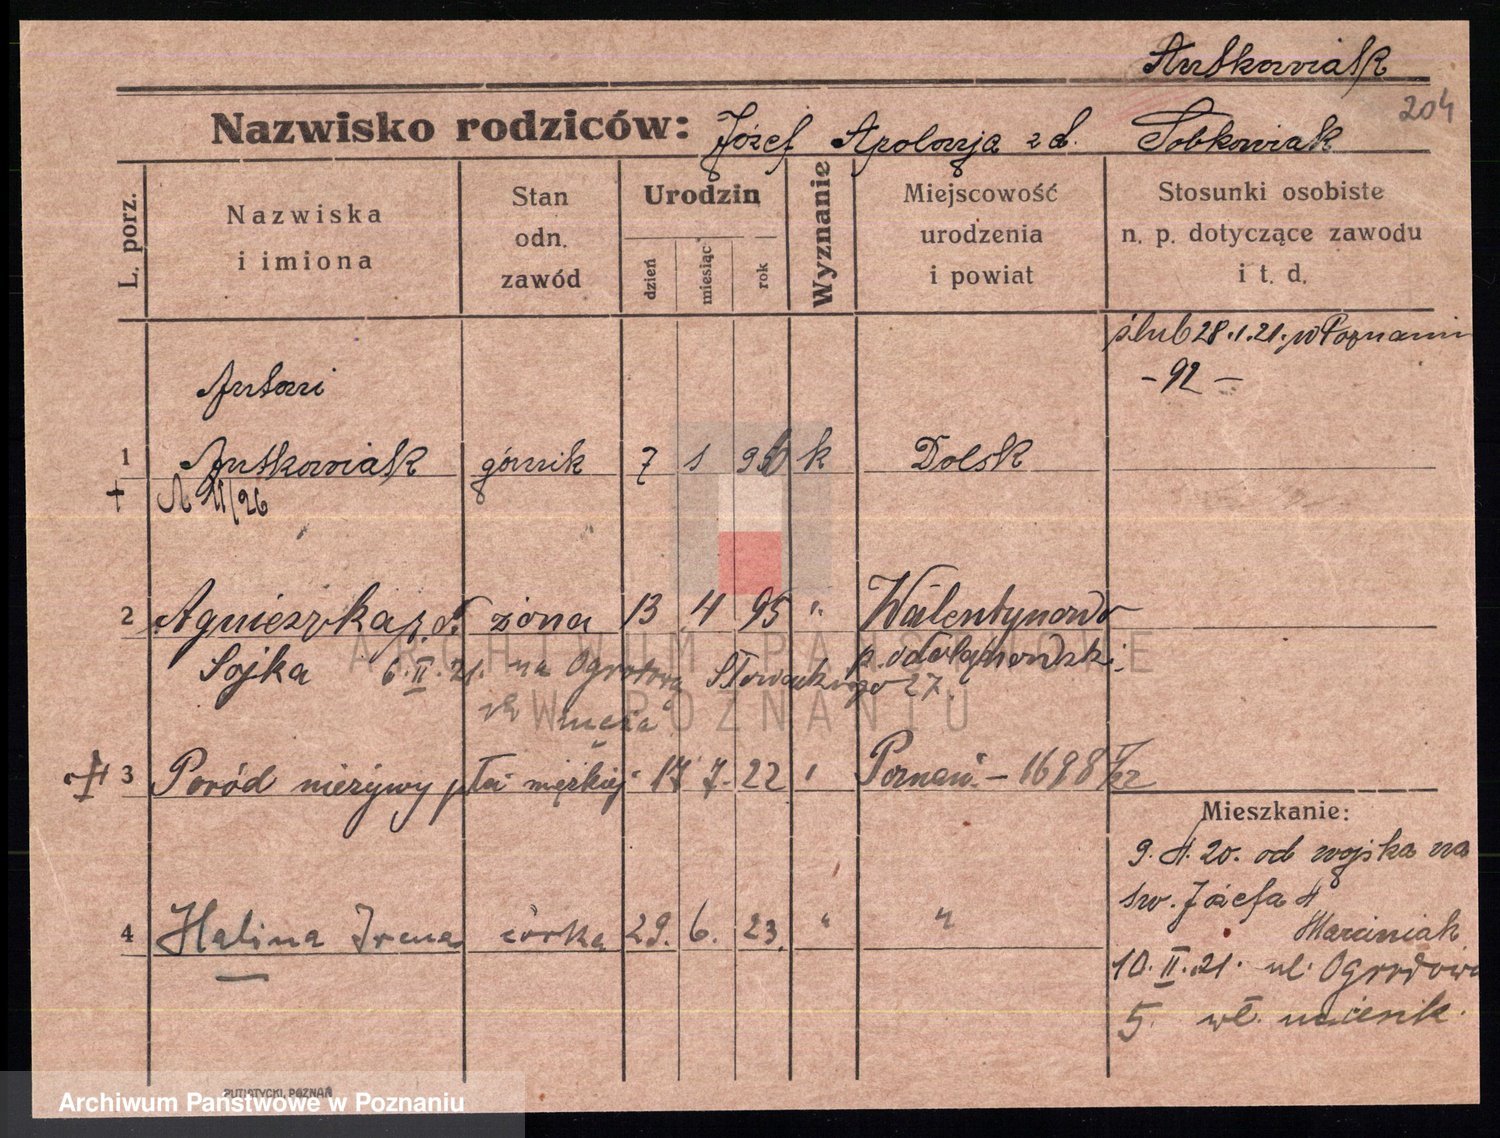 Antkowiak
204
Nazwisko rodziców: Józef Apolonja z d. Sobkowiak
L. porz.
Nazwiska
i imiona
Stan
odn.
zawód
Urodzin
dzień
miesiąc
rok
Wyznanie
Miejscowość
urodzenia
i powiat
Stosunki osobiste
n. p. dotyczące zawodu
i t. d.
ślub 28.1.21. w Poznaniu
- 92 -
Antoni
1 Antkowiak górnik 7 1 96 k Dolsk
+
2 Agnieszka p. d. żona 13 4 95 " Walentynowo
Sojka 6.II.21. na Ogrodową Słowackiego 27.
p. odolanowski
męża
3 Poród nieżywy płci męskiej 17 7. 22 " Poznań - 1698/22
Mieszkanie:
9. 4. 20. od wojska na
św. Józefa 4
Marciniak
4 Halina Irena córka 29. 6. 23. " "
10. II. 21. ul. Ogrodowa
5.
PUTIATYCKI, POZNAŃ
ARCHIWUM PAŃSTWOWE
W POZNANIU
Archiwum Państwowe w Poznaniu